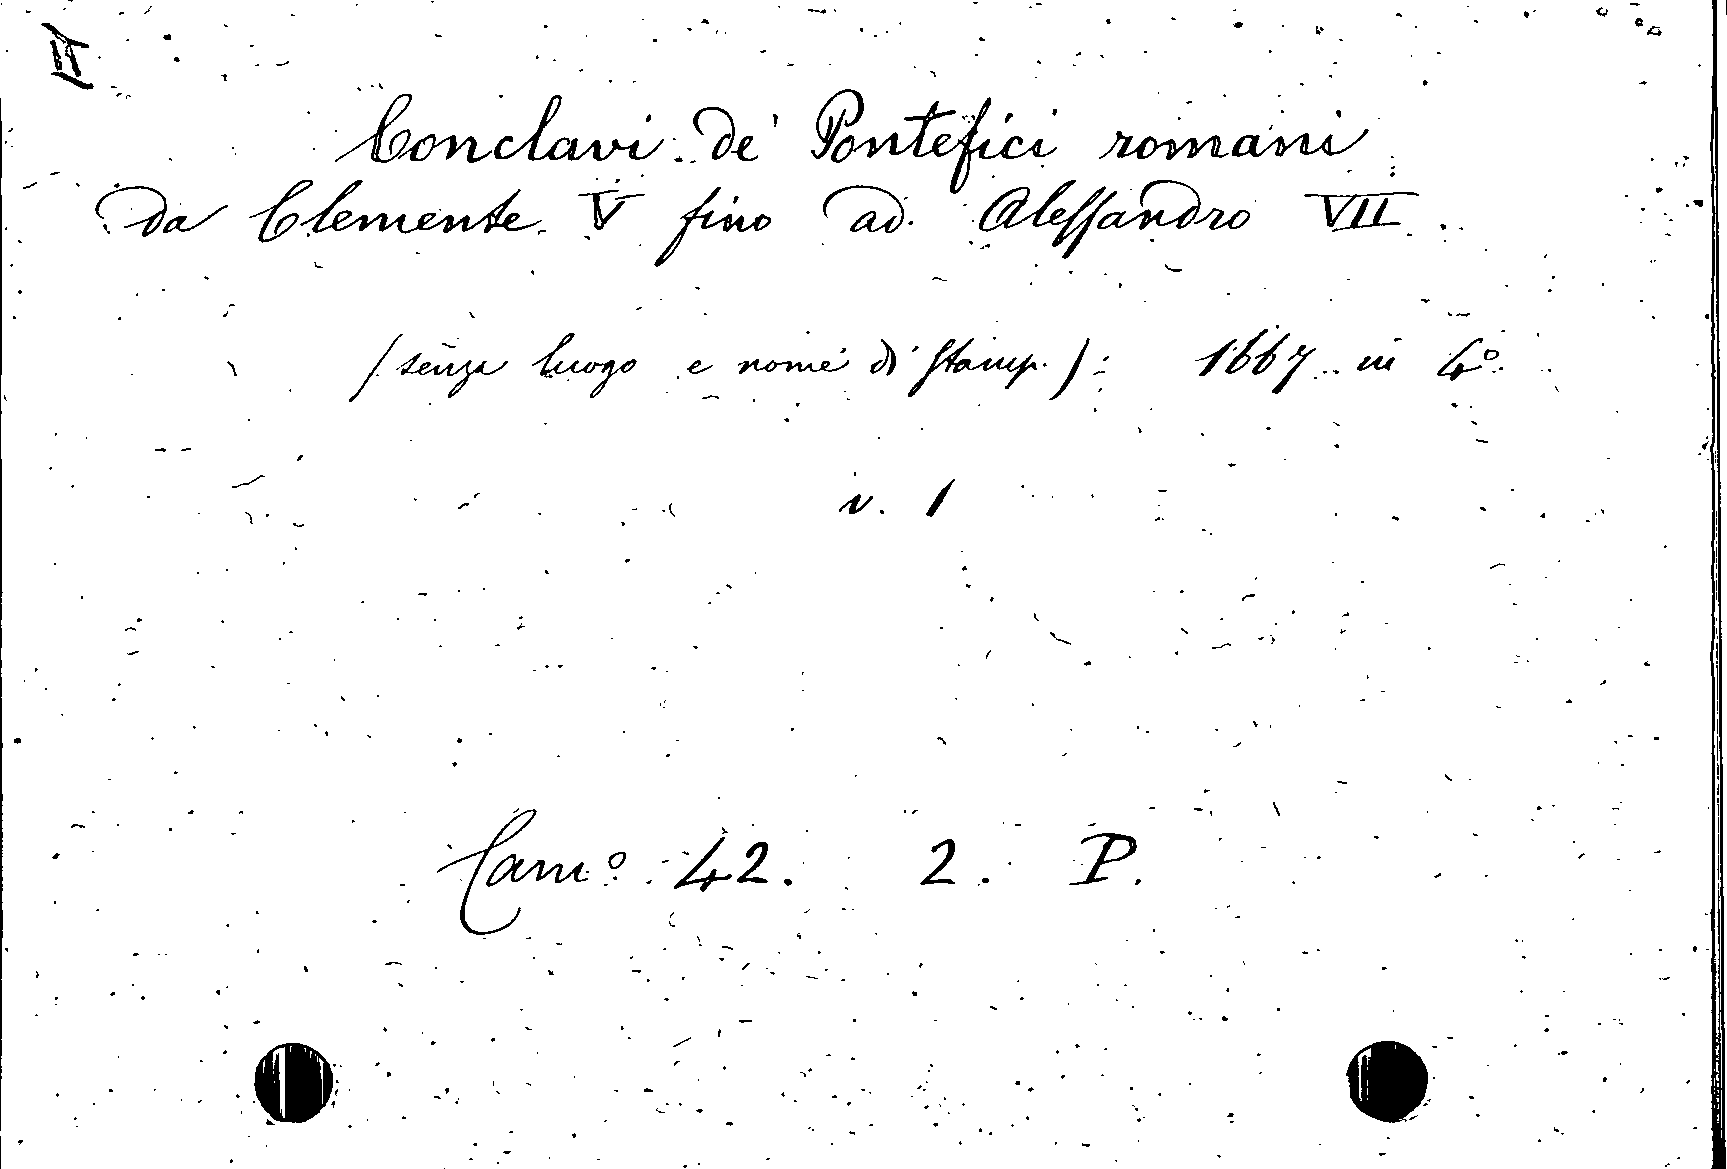 II
Conclavi de' Pontefici romani
da Clemente V fino ad Alessandro VII
(senza luogo e nome di stamp.): 1667 in 4°
v. 1
Cam° 42. 2. P.